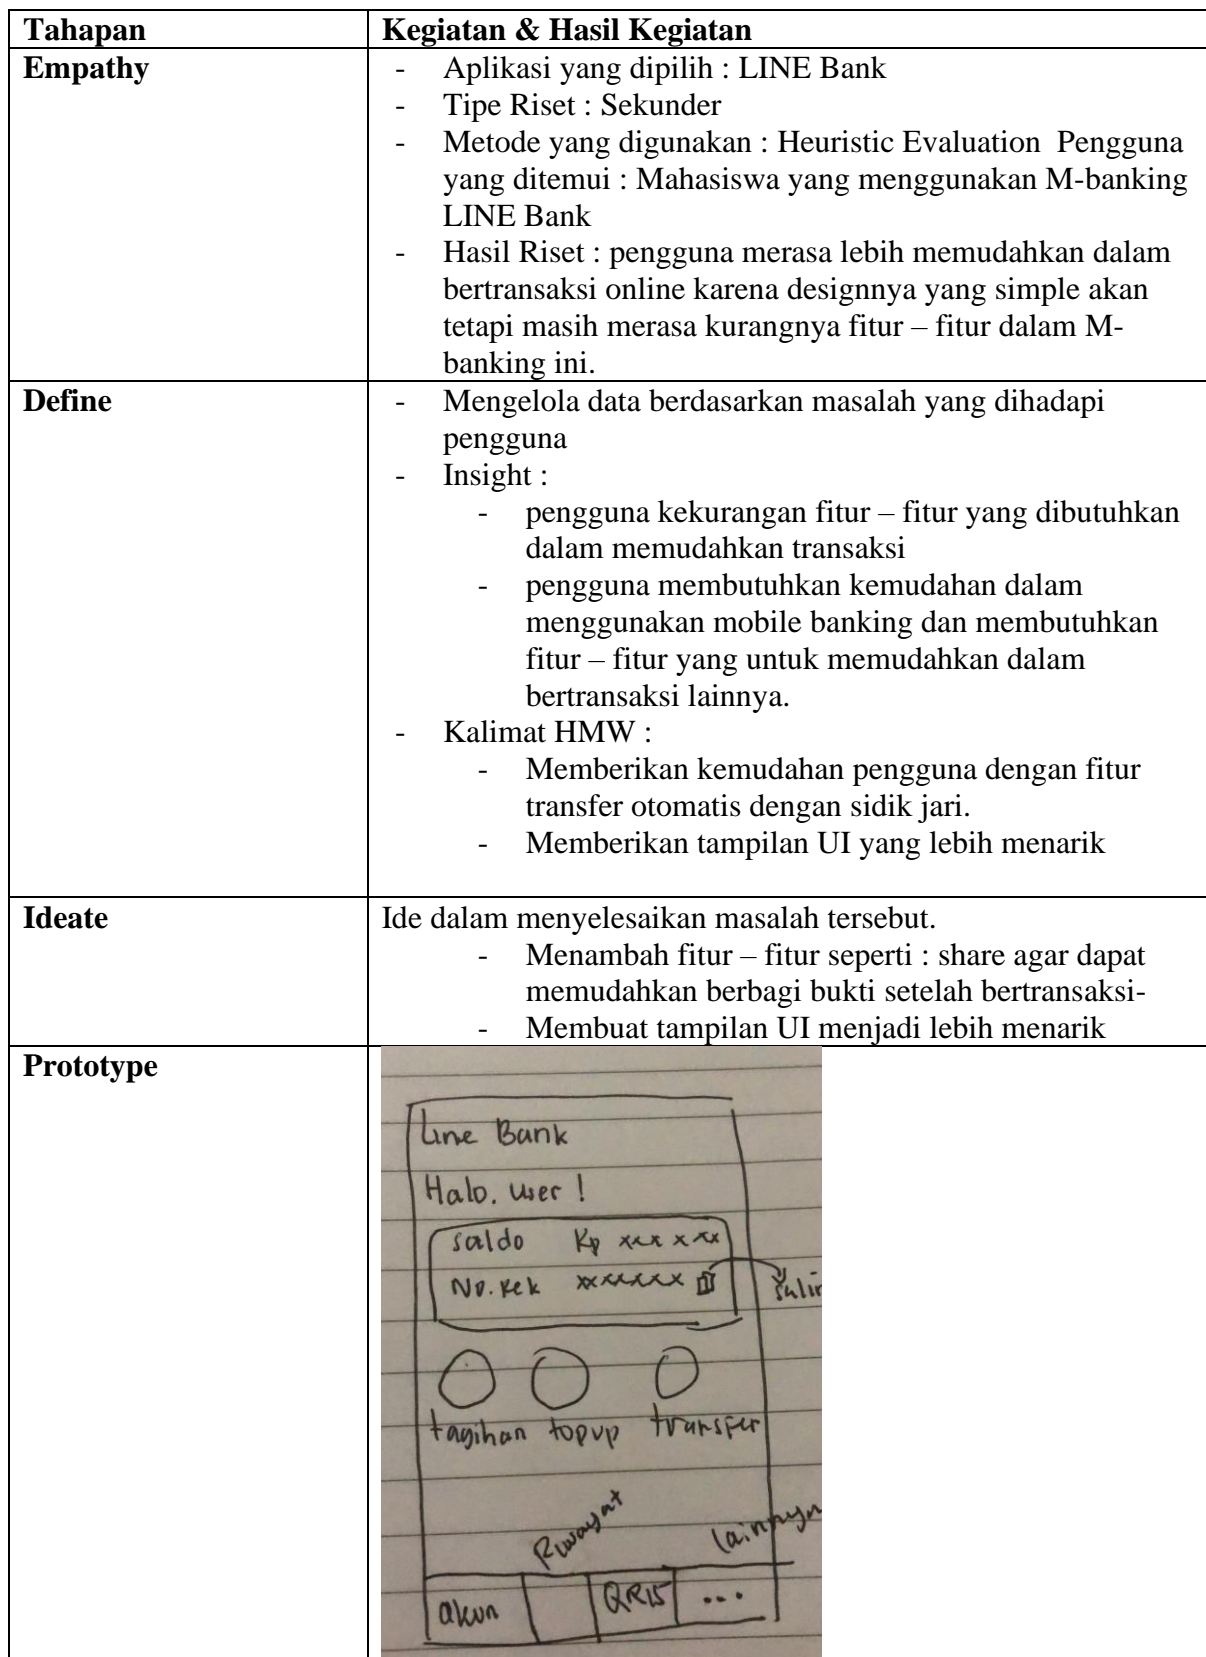 Tahapan
Kegiatan & Hasil Kegiatan
Empathy
- Aplikasi yang dipilih : LINE Bank
- Tipe Riset : Sekunder
- Metode yang digunakan : Heuristic Evaluation Pengguna
yang ditemui : Mahasiswa yang menggunakan M-banking
LINE Bank
- Hasil Riset : pengguna merasa lebih memudahkan dalam
bertransaksi online karena designnya yang simple akan
tetapi masih merasa kurangnya fitur – fitur dalam M-
banking ini.
Define
- Mengelola data berdasarkan masalah yang dihadapi
pengguna
- Insight :
- pengguna kekurangan fitur – fitur yang dibutuhkan
dalam memudahkan transaksi
- pengguna membutuhkan kemudahan dalam
menggunakan mobile banking dan membutuhkan
fitur – fitur yang untuk memudahkan dalam
bertransaksi lainnya.
- Kalimat HMW :
- Memberikan kemudahan pengguna dengan fitur
transfer otomatis dengan sidik jari.
- Memberikan tampilan UI yang lebih menarik
Ideate
Ide dalam menyelesaikan masalah tersebut.
- Menambah fitur – fitur seperti : share agar dapat
memudahkan berbagi bukti setelah bertransaksi-
- Membuat tampilan UI menjadi lebih menarik
Prototype
Line Bank
Halo. User !
saldo Rp xxx x xx
No. Rek xxxxxxx
Salin
tagihan topup transfer
Riwayat
lainnya
akun
QRIS
...